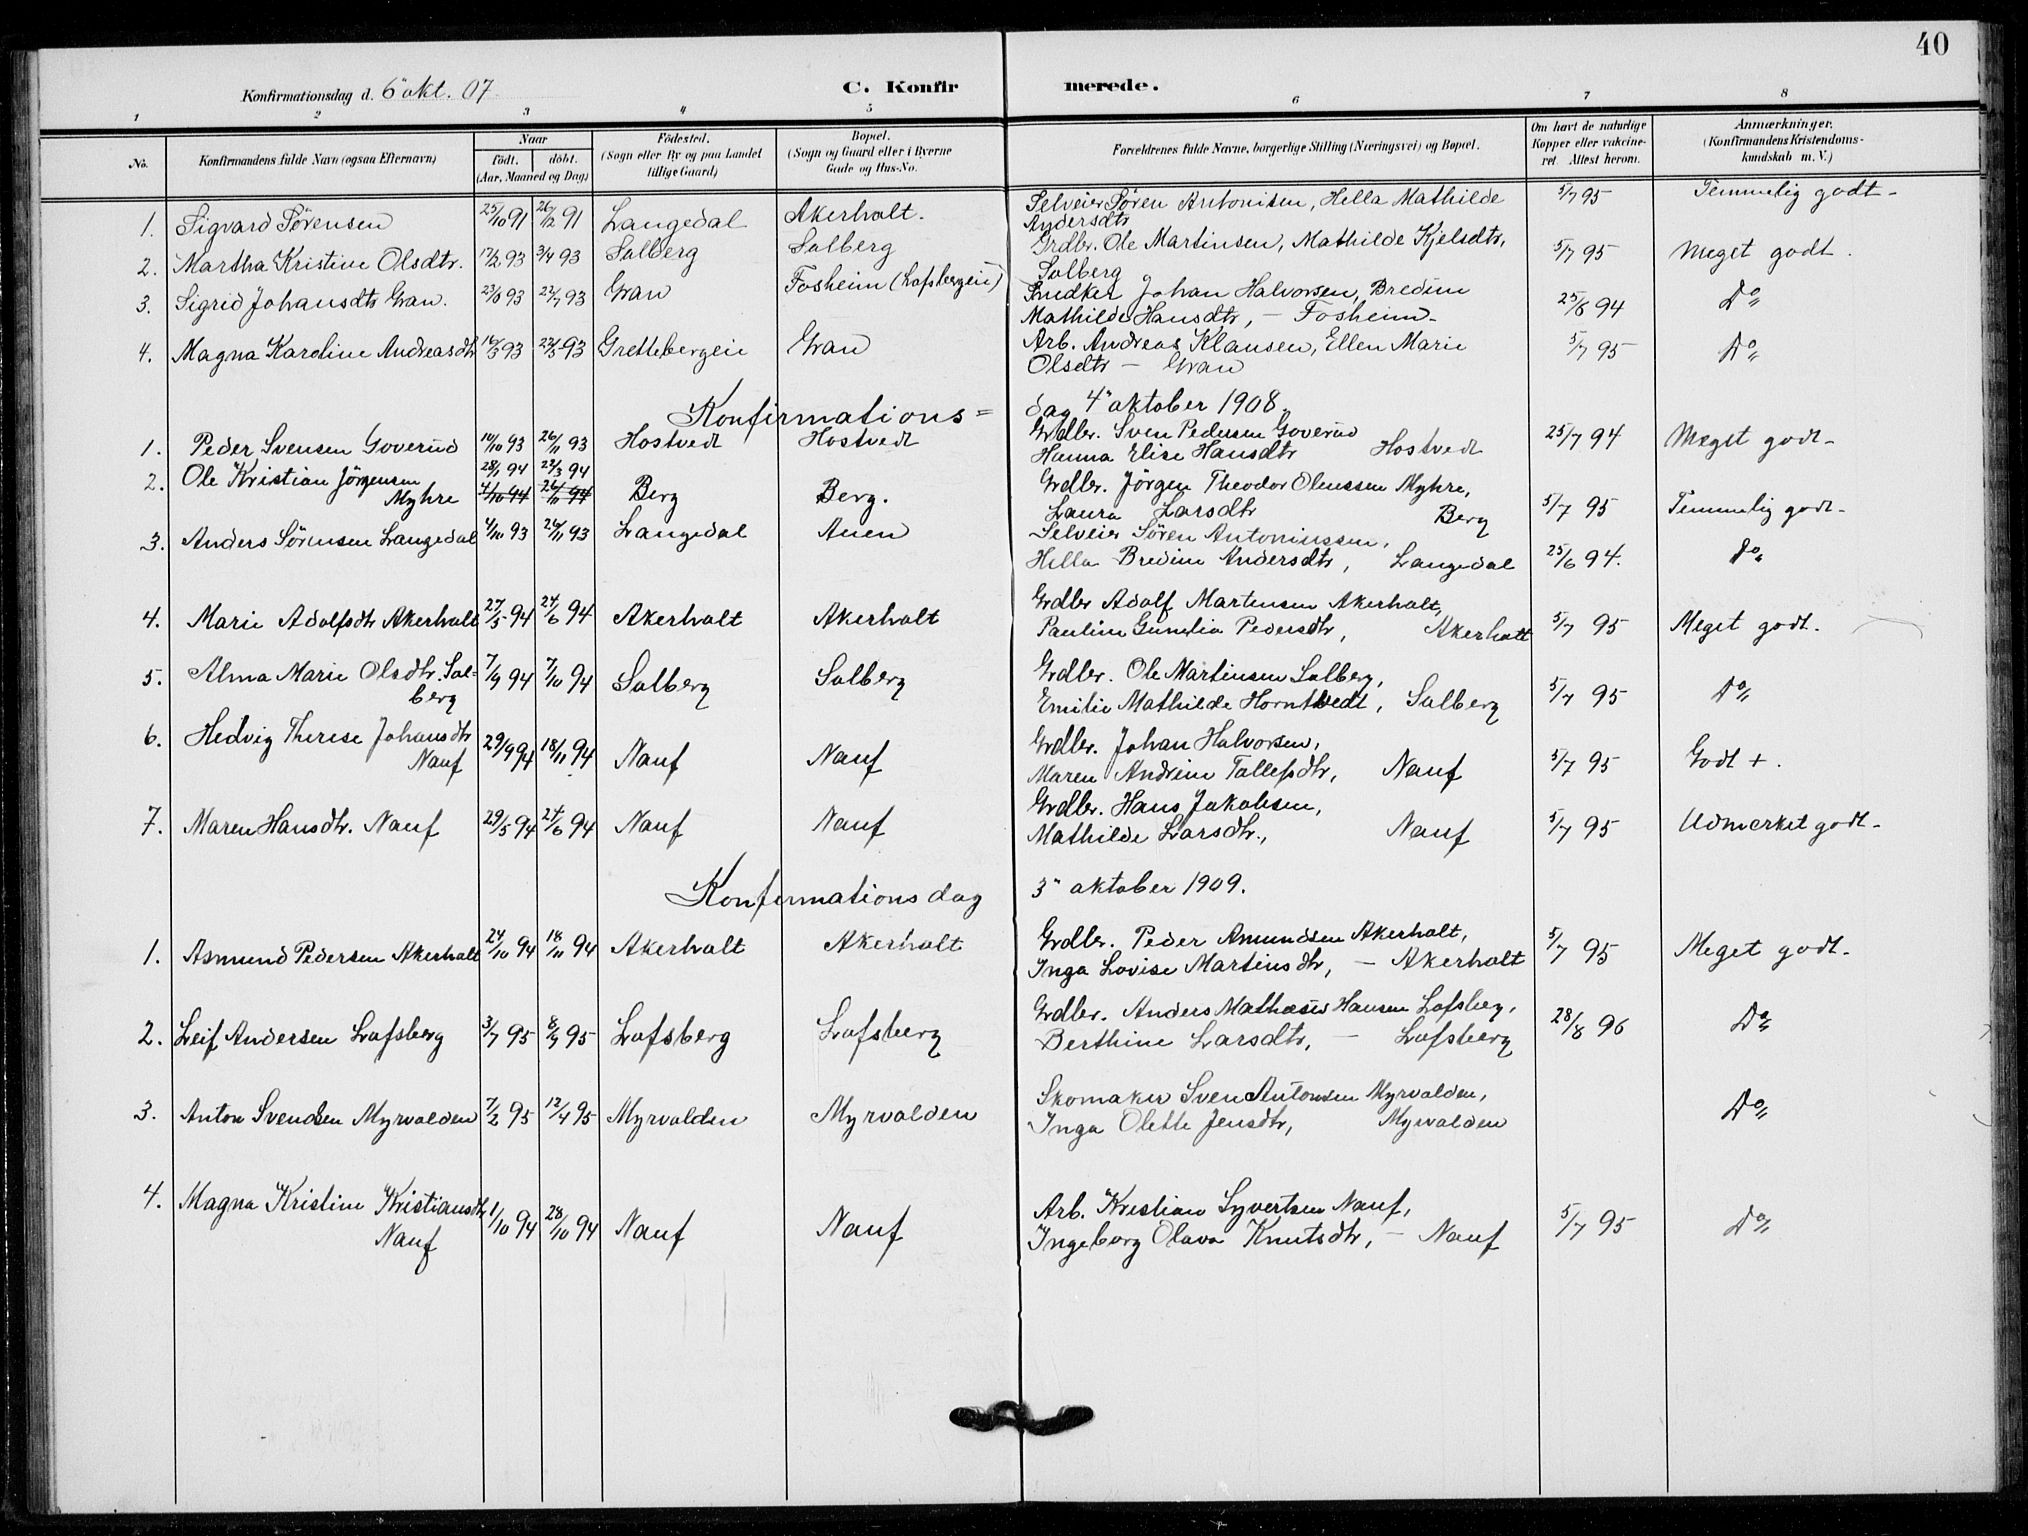 40
Konfirmationsdag d. 6 okt. 07
C. Konfirmerede.
1 2 3 4 5 6 7 8
No.
Konfirmandens fulde Navn (ogsaa Efternavn)
Naar
födt. döbt.
(Aar, Maaned og Dag)
Födested.
(Sogn eller By og paa Landet
tillige Gaard)
Bopæl.
(Sogn og Gaard eller i Byerne
Gade og Hus-No.
Forældrenes fulde Navne, borgerlige Stilling (Næringsvei) og Bopæl.
Om havt de naturlige
Kopper eller vakcine-
ret Attest herom.
Anmærkninger.
(Konfirmandens Kristendoms-
kundskab m. V.)
1. Sigvard Sørensen 25/10 91 26/12 91 Langedal Akerholt. Selveier Søren Antonisen, Hella Mathilde 5/7 95 Temmelig godt -
Andersdtr
2. Martha Kristine Olsdtr. 17/2 93 3/4 93 Solberg Solberg Grdbr. Ole Martinsen, Mathilde Kjelsdtr, 5/7 95 Meget godt.
Solberg
3. Sigrid Johansdtr Gran. 93 93 Gran Fosheim (Lofsbergeie) Snedker Johan Halvorsen, Bredine 25/8 94 Do
Mathilde Hansdtr, - Fosheim -
4. Magna Karoline Andreasdtr 93 22/5 93 Grettebergeie Gran Arb. Andreas Klausen, Ellen Marie 5/7 95 Do
Olsdtr - Gran
Konfirmations= dag 4" oktober 1908.
1. Peder Svensen Goverud 10/10 93 26/11 93 Hostvedt Hostvedt Grdbr. Sven Pedersen Goverud 25/7 94 Meget godt -
Hanna Elise Hansdtr Hostvedt
2. Ole Kristian Jörgensen 28/1 94 22/3 94
Myhre 4/10 94 26/11 94 Berg Berg. Grdbr. Jörgen Theodor Olaussen Myhre, 5/7 95 Temmelig godt -
Laura Larsdtr Berg
3. Anders Sörensen Langedal 4/10 93 26/11 93 Langedal Auen Selveier Sören Antonissen, 25/6 94. Do
Hella Bredine Andersdtr, Langedal
4. Marie Adolfsdtr Akerholt 27/5 94 24/6 94 Akerholt Akerholt Grdbr Adolf Martensen Akerholt, 5/7 95 Meget godt.
Pauline Gunelia Pedersdtr, Akerholt
5. Alma Marie Olsdtr. Sol= 7/9 94 7/10 94 Solberg Solberg Grdbr. Ole Martinsen Solberg, 5/7 95 Do
berg Emilie Mathilde Horntvedt, Solberg
6. Hedvig Therese Johansdtr 29/9 94 18/11 94 Nauf Nauf Grdbr. Johan Halvorsen, 5/7 95 Godt +.
Nauf Maren Andrine Tollefsdtr, Nauf
7. Maren Hansdtr. Nauf 29/5 94 24/6 94 Nauf Nauf Grdbr. Hans Jakobsen, 5/7 95 Udmerket godt -
Mathilde Larsdtr., Nauf
Konfirmationsdag 3" oktober 1909.
1. Asmund Pedersen Akerholt 24/10 94 18/11 94 Akerholt Akerholt Grdbr. Peder Amundsen Akerholt, 5/7 95 Meget godt -
Inga Lovise Martinsdtr, - Akerholt
2. Leif Andersen Lofsberg 3/7 95 8/9 95 Lofsberg Lofsberg Grdbr. Anders Mathæus Hansen Lofsberg, 28/8 96 Do
Berthine Larsdtr, - Lofsberg
3. Anton Svendsen Myrvolden 7/2 95 12/4 95 Myrvolden Myrvolden Skomaker Sven Antonsen Myrvolden, Do
Inga Olette Jensdtr, Myrvolden
4. Magna Kristine Kristiansdtr 1/10 94 28/10 94 Nauf Nauf Arb. Kristian Syvertsen Nauf, 5/7 95 Do
Nauf Ingeborg Olava Knutsdtr, - Nauf